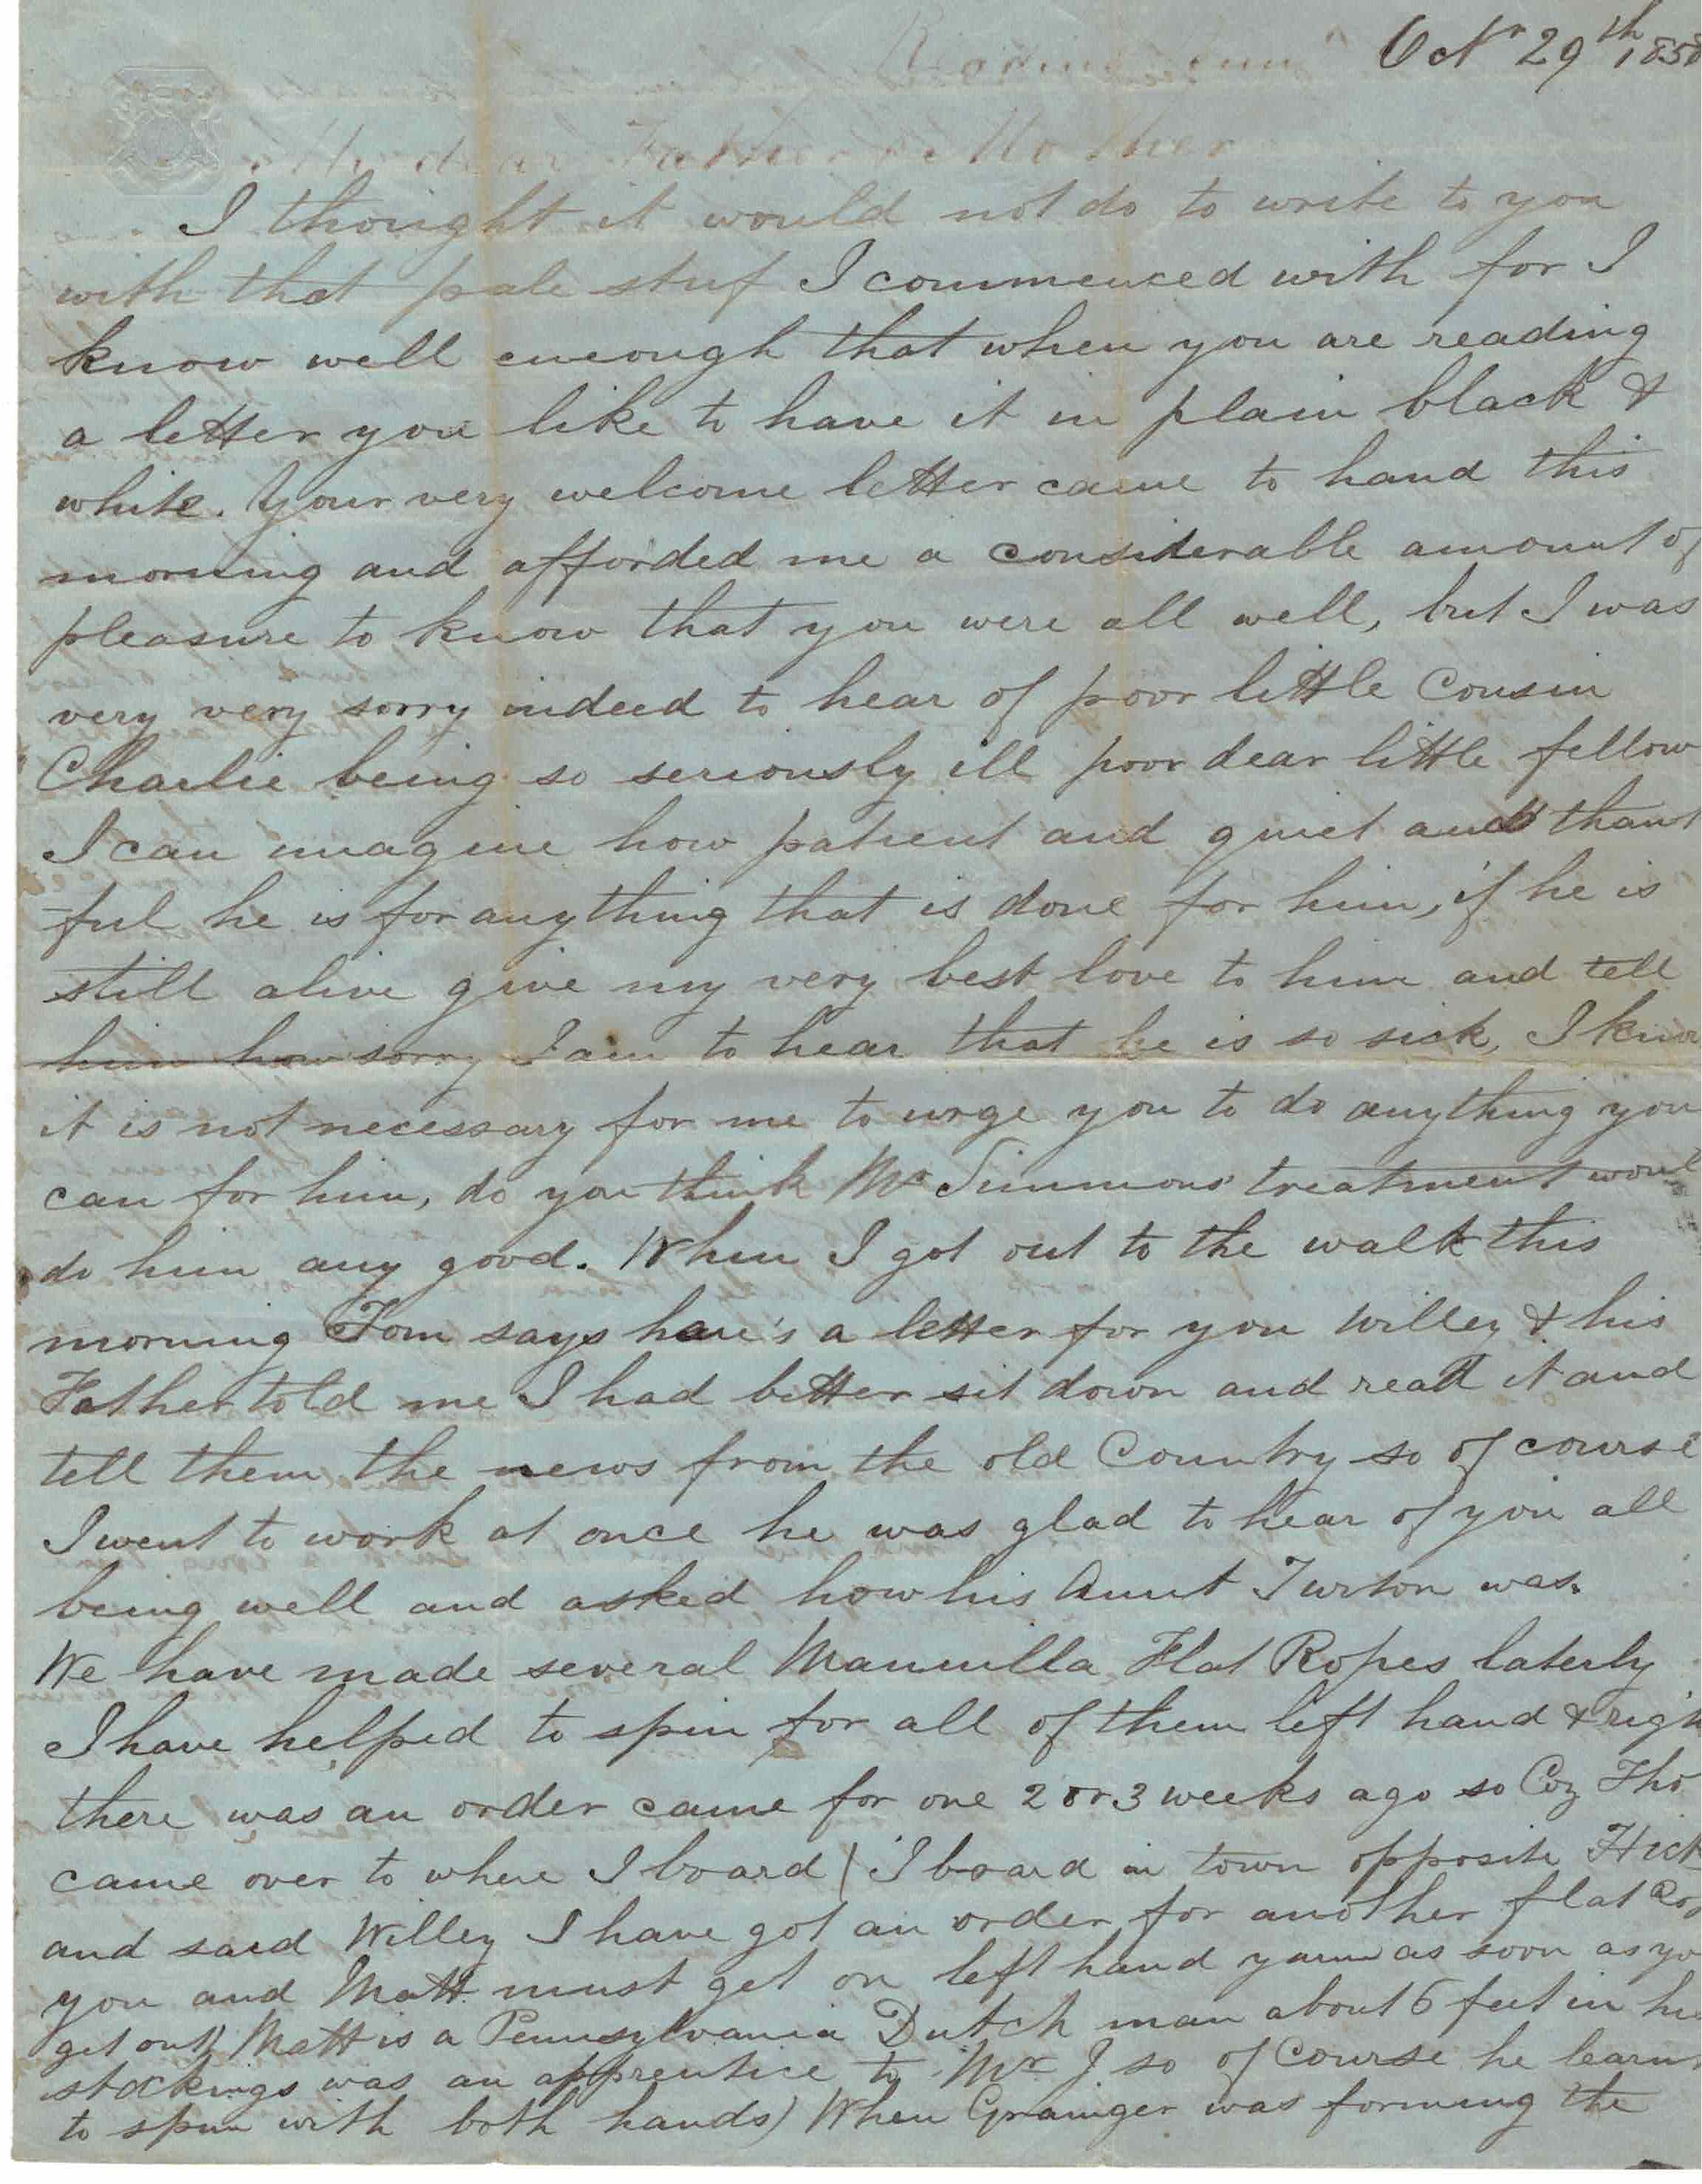 Octr 29th 1858
My dear Father & Mother
I thought it would not do to write to you
with that pale stuf I commenced with for I
know well eneough that when you are reading
a letter you like to have it in plain black &
white. Your very welcome letter came to hand this
morning and afforded me a considerable amount of
pleasure to know that you were all well, but I was
very very sorry indeed to hear of poor little Cousin
Charlie being so seriously ill poor dear little fellow
I can imagine how patient and quiet and thank
ful he is for anything that is done for him, if he is
still alive give my very best love to him and tell
him how sorry I am to hear that he is so sick, I know
it is not necessary for me to urge you to do anything you
can for him, do you think Mr Simmons' treatment would
do him any good. When I got out to the walk this
morning Tom says hare's a letter for you Willey & his
Father told me I had better sit down and read it and
tell them the news from the old Country so of course
I went to work at once he was glad to hear of you all
being well and asked how his Aunt Turton was.
We have made several Mannilla Flat Ropes laterly
I have helped to spin for all of them left hand & righ
there was an order came for one 2 or 3 weeks ago so Coz Tho
came over to where I board ( I board in town opposite Hick
and said Willey I have got an order for another flat Rop
you and Matt must get on left hand yarn as soon as yo
get out) Matt is a Pennsylvania Dutch man about 6 feet in his
stockings was an apprentice to Mr J. so of course he learn
to spin with both hands) When Grainger was forming the